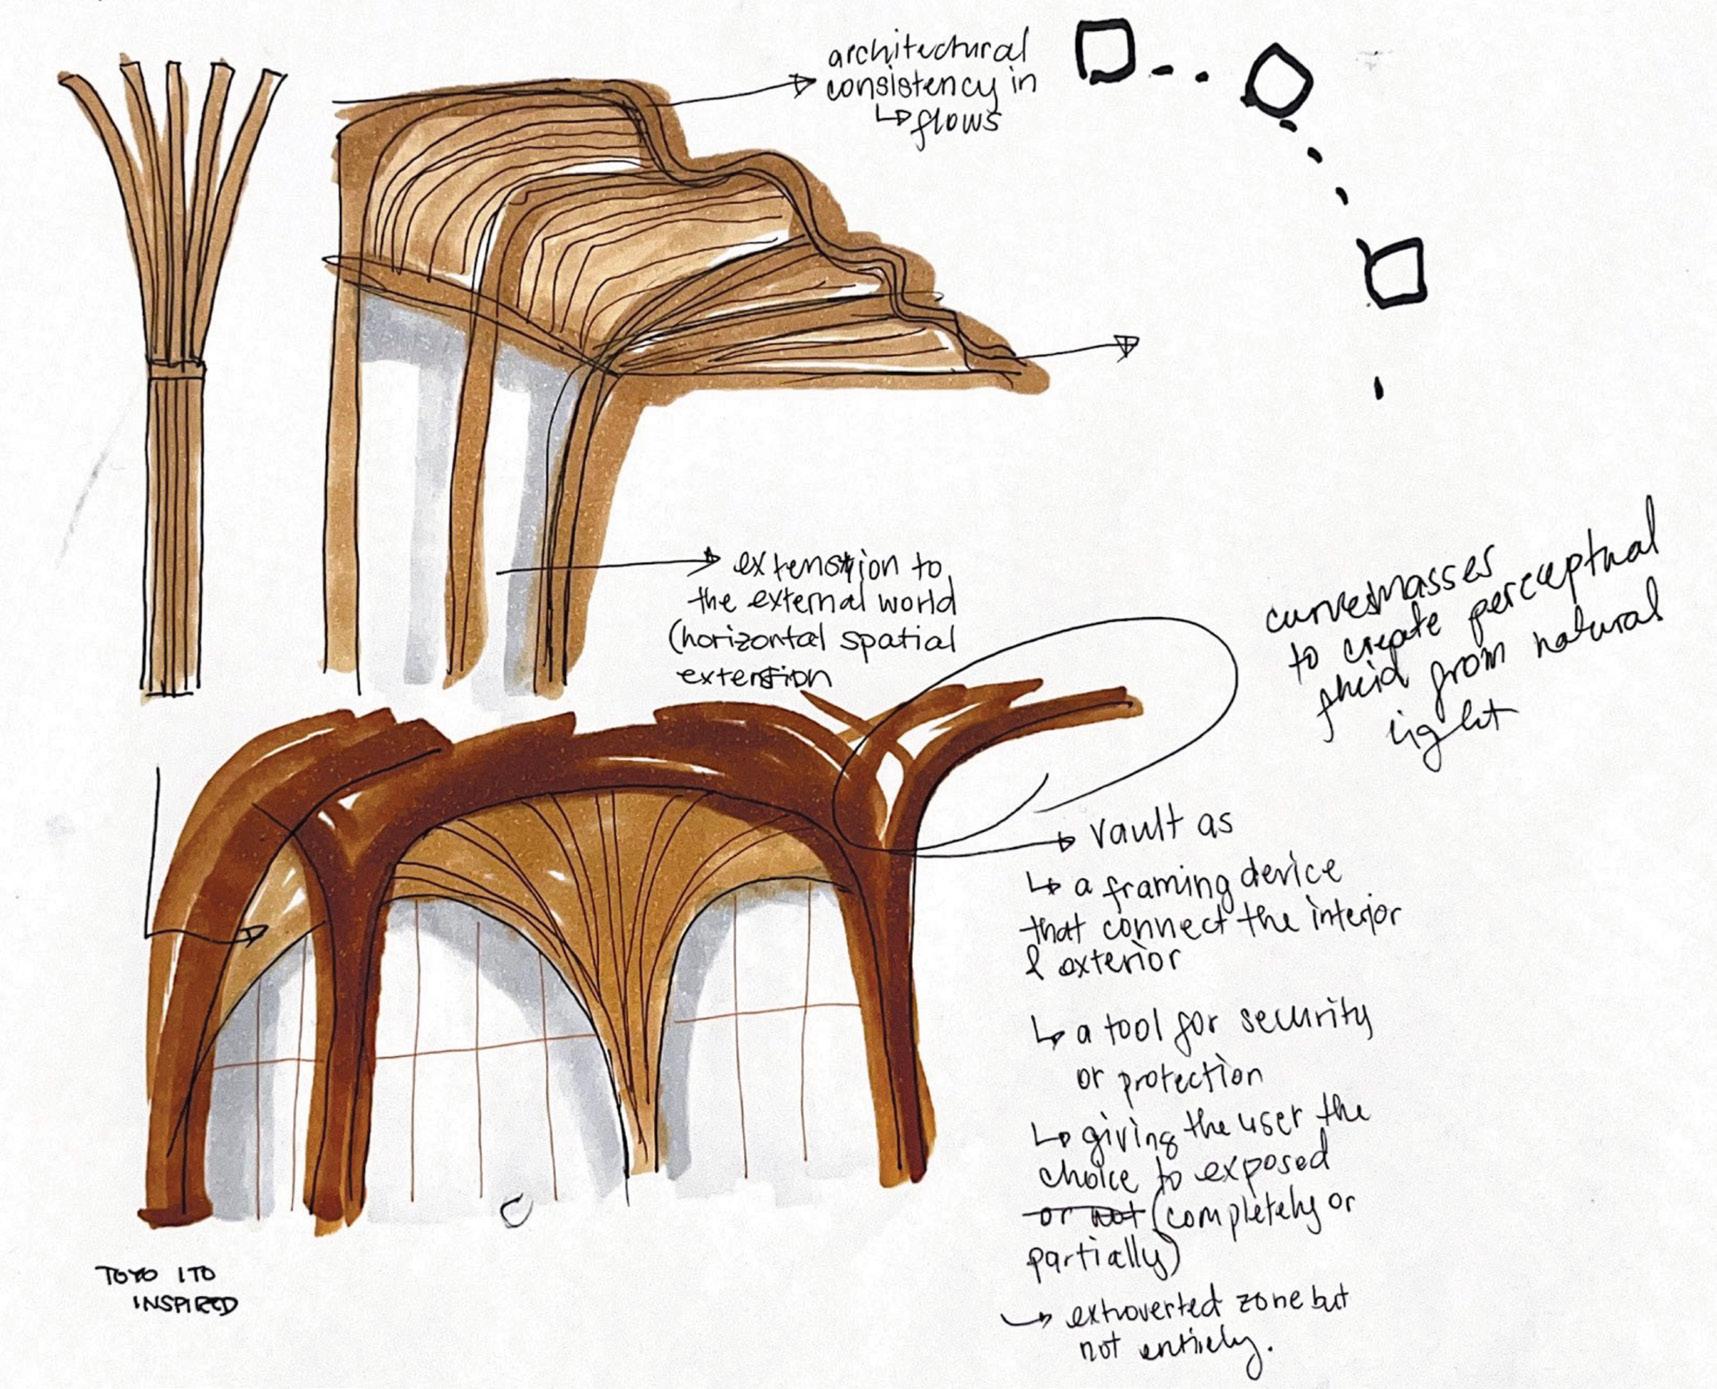 architectural
consistency in
↳ flows
extenstion to
the external world
(horizontal spatial
extension
curvesmasses
to create perceptual
fluid from natural
light
vault as
↳ a framing device
that connect the interior
& exterior
↳ a tool for security
or protection
↳ giving the user the
choice to exposed
or not (completely or
partially)
→ extroverted zone but
not entirely.
TOYO ITO
INSPIRED